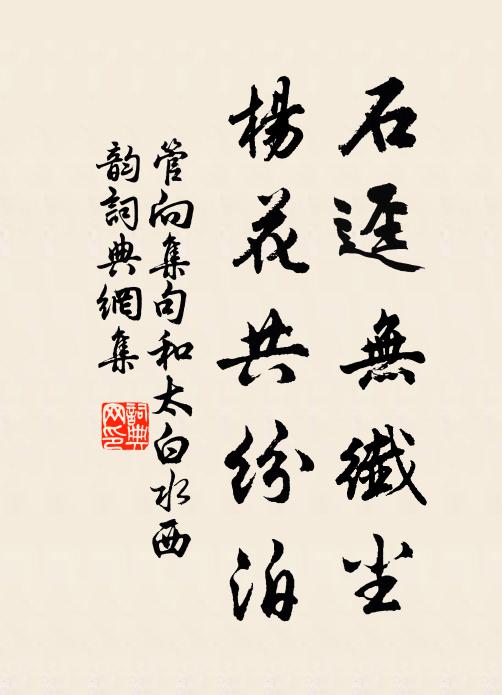 石逕無纖尘
楊花共紛泊
管向集句和太白水西
韵詞典網集
詞典
网印